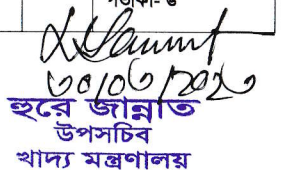 পতাকা- ৬
৩০/০৬/২০২৬
হুরে জান্নাত
উপসচিব
খাদ্য মন্ত্রণালয়